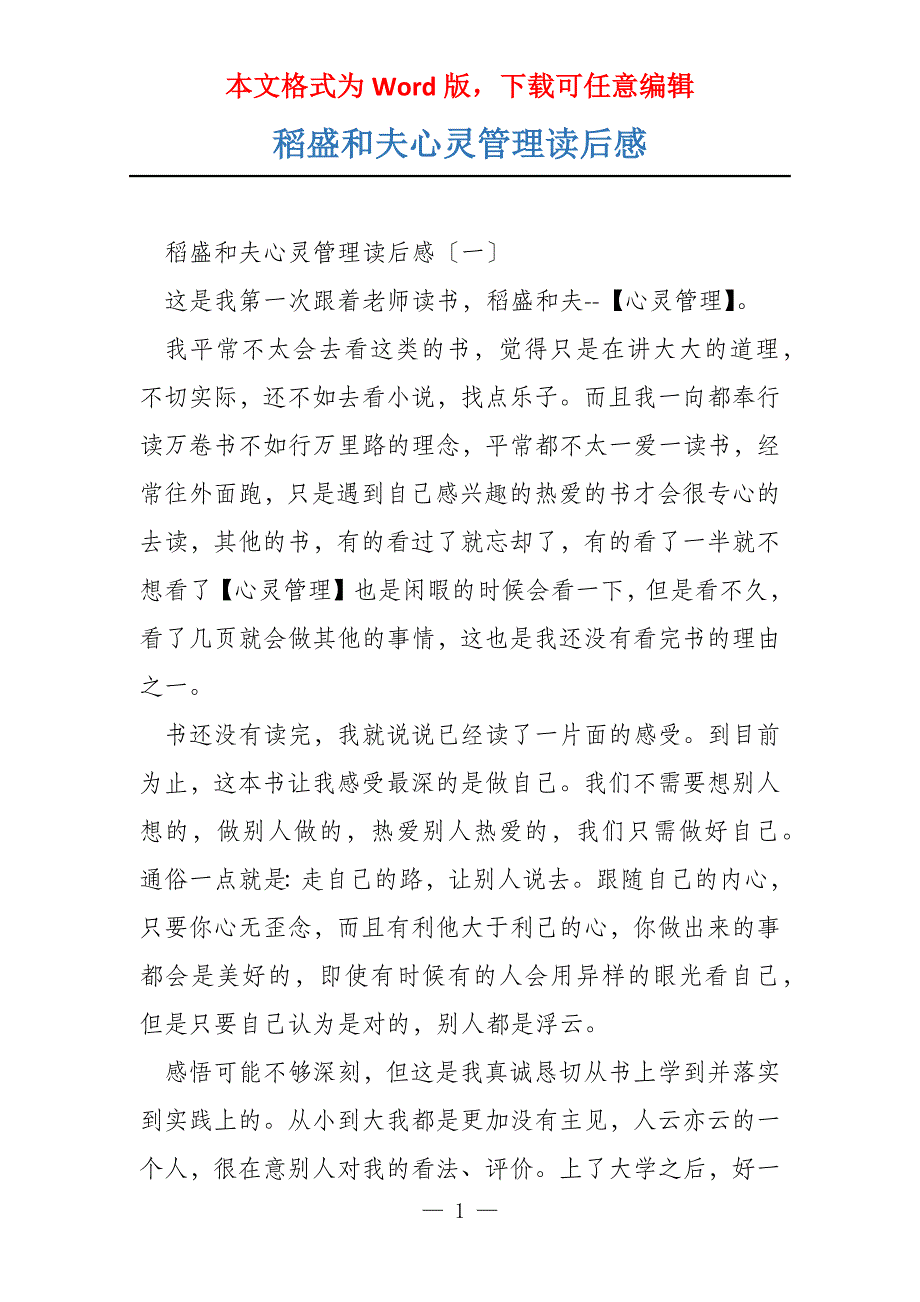 本文格式为 Word 版，下载可任意编辑
稻盛和夫心灵管理读后感
稻盛和夫心灵管理读后感〔一〕
这是我第一次跟着老师读书，稻盛和夫--【心灵管理】。
我平常不太会去看这类的书，觉得只是在讲大大的道理，
不切实际，还不如去看小说，找点乐子。而且我一向都奉行
读万卷书不如行万里路的理念，平常都不太一爱一读书，经
常往外面跑，只是遇到自己感兴趣的热爱的书才会很专心的
去读，其他的书，有的看过了就忘却了，有的看了一半就不
想看了【心灵管理】也是闲暇的时候会看一下，但是看不久，
看了几页就会做其他的事情，这也是我还没有看完书的理由
之一。
书还没有读完，我就说说已经读了一片面的感受。到目前
为止，这本书让我感受最深的是做自己。我们不需要想别人
想的，做别人做的，热爱别人热爱的，我们只需做好自己。
通俗一点就是: 走自己的路，让别人说去。跟随自己的内心，
只要你心无歪念，而且有利他大于利己的心，你做出来的事
都会是美好的，即使有时候有的人会用异样的眼光看自己，
但是只要自己认为是对的，别人都是浮云。
感悟可能不够深刻，但这是我真诚恳切从书上学到并落实
到实践上的。从小到大我都是更加没有主见，人云亦云的一
个人，很在意别人对我的看法、评价。上了大学之后，好一
— 1 —